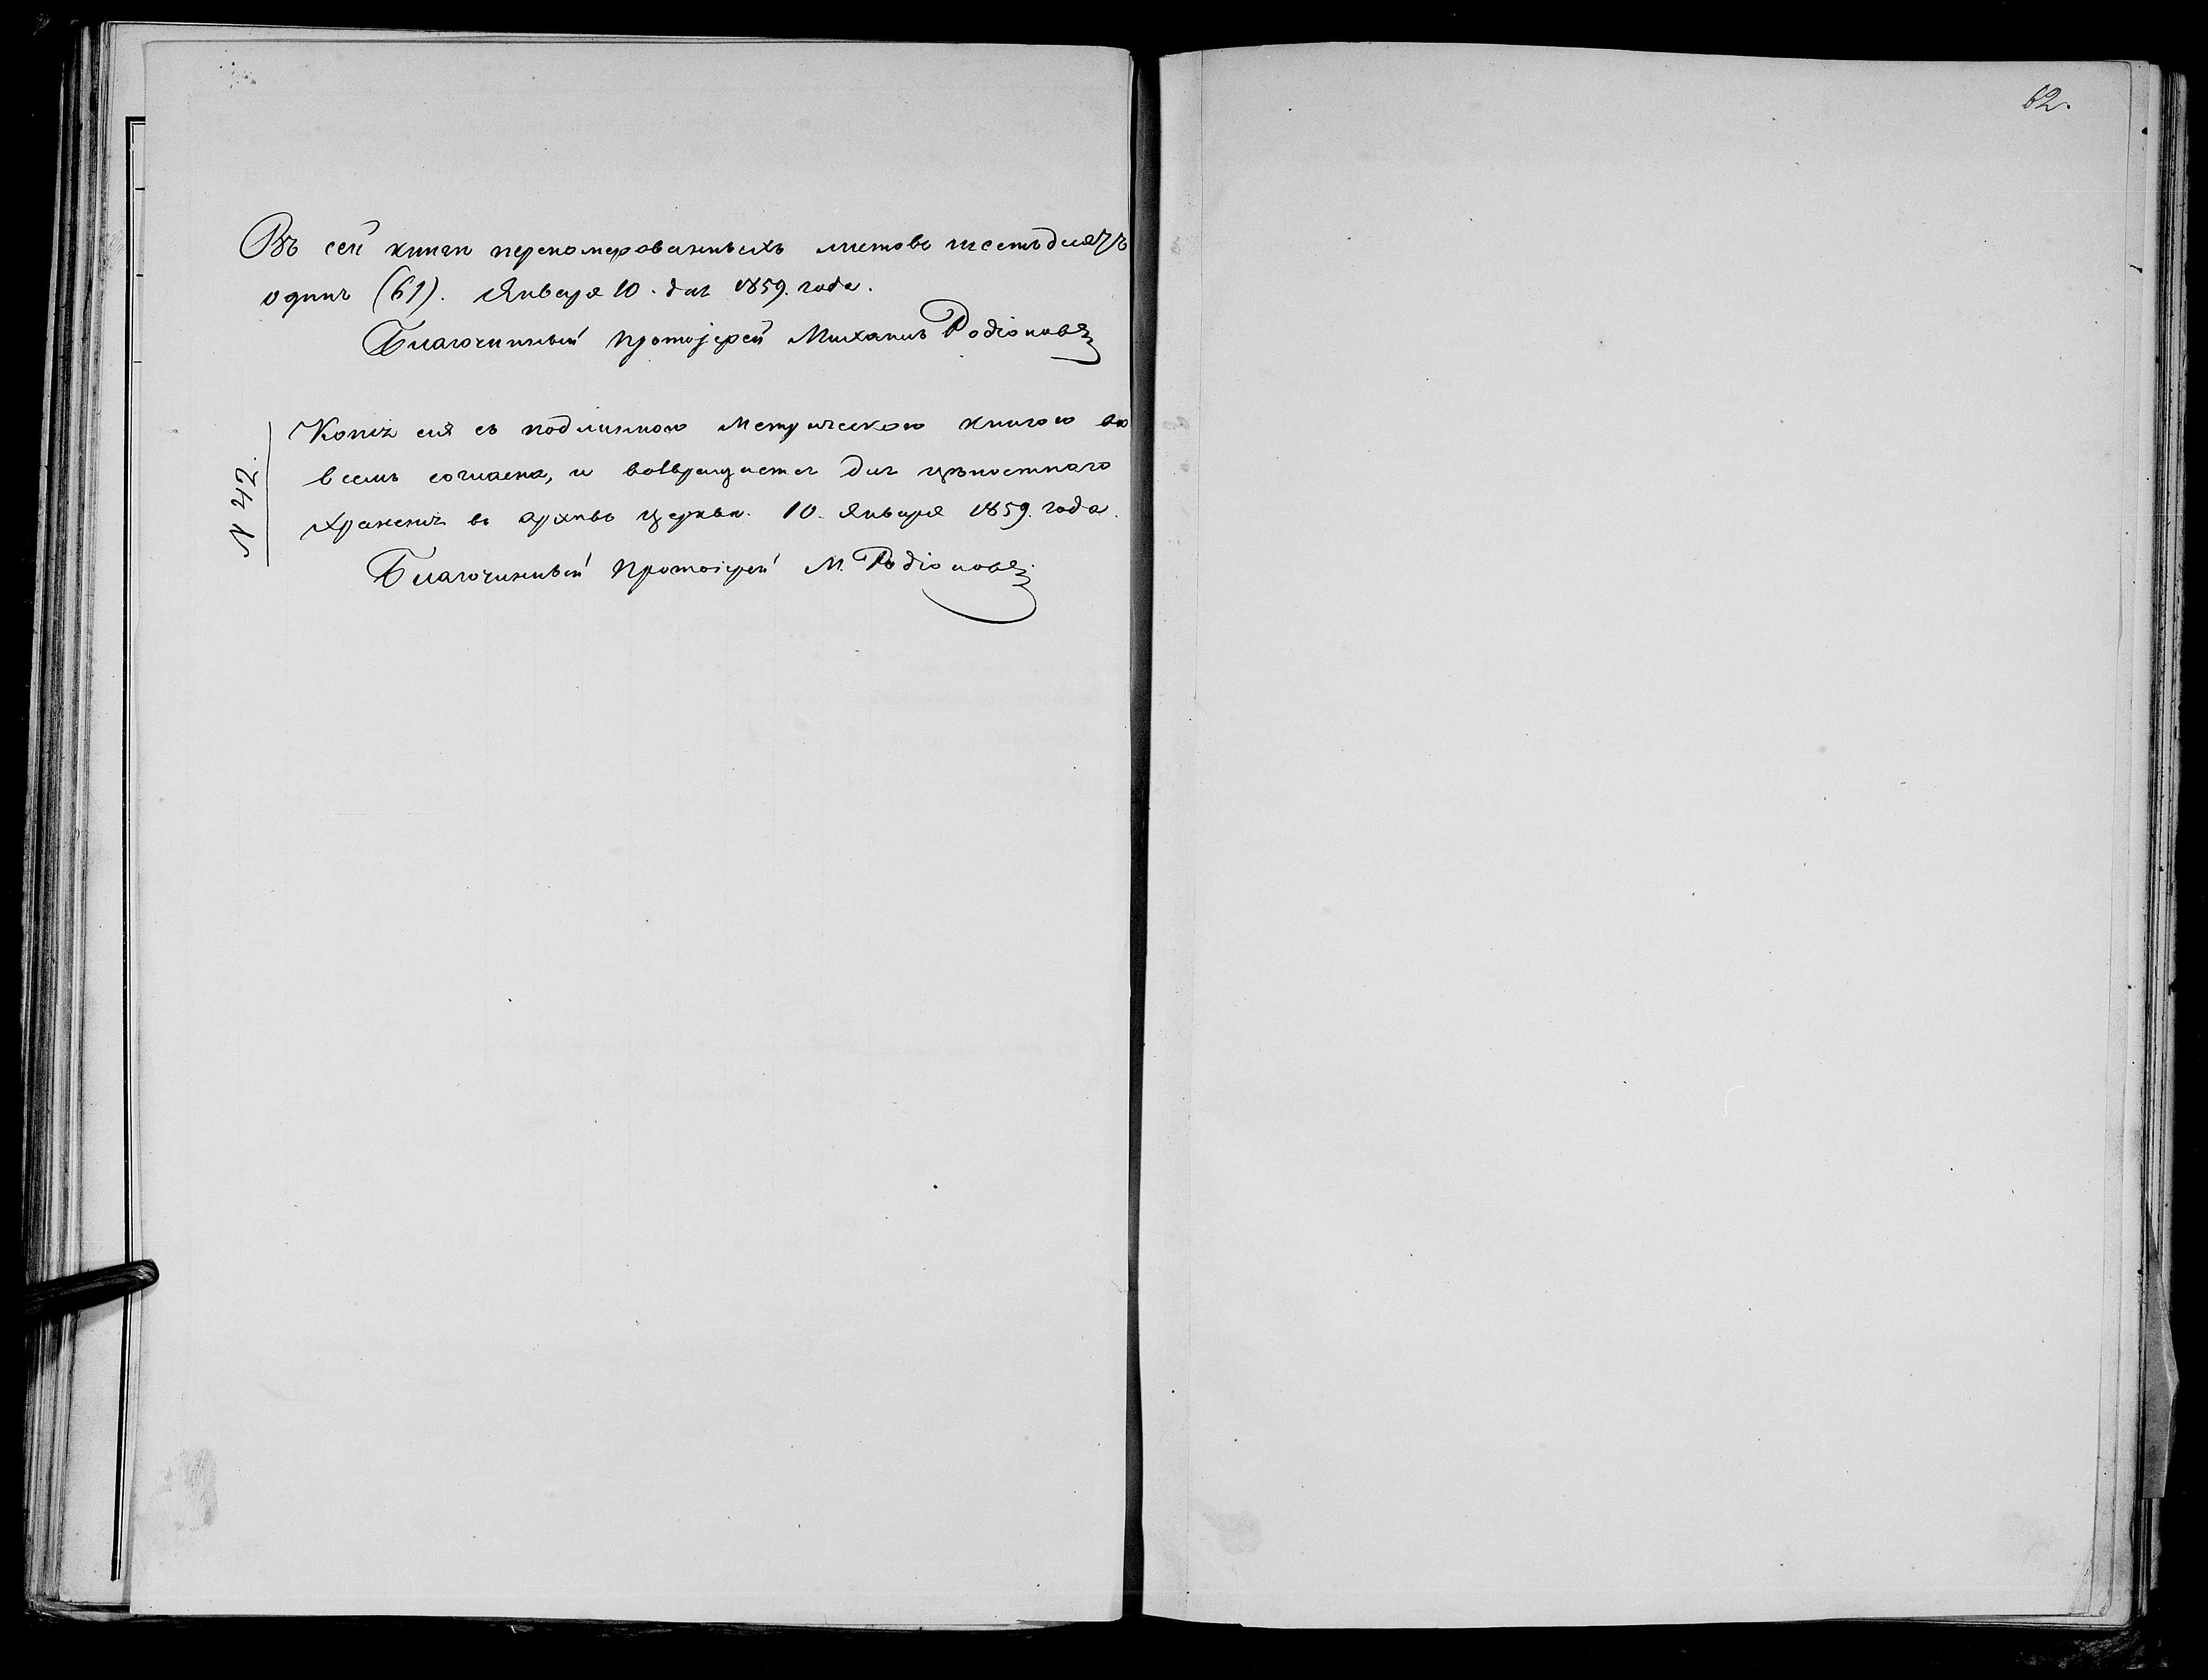 62.
Въ сей книги перекомерованныхъ листовъ шестьдесятъ
одинъ (61). Января 10. дня 1859. года.
Благочинный Протоіерей Михаилъ Родіоновъ
N 42.
Копія сія съ подлинною Метрическою книгою во
всемъ согласна, и возвращается для цѣлостнаго
храненія въ архивъ церкви. 10. Января 1859. года.
Благочинный Протоіерей М. Родіоновъ